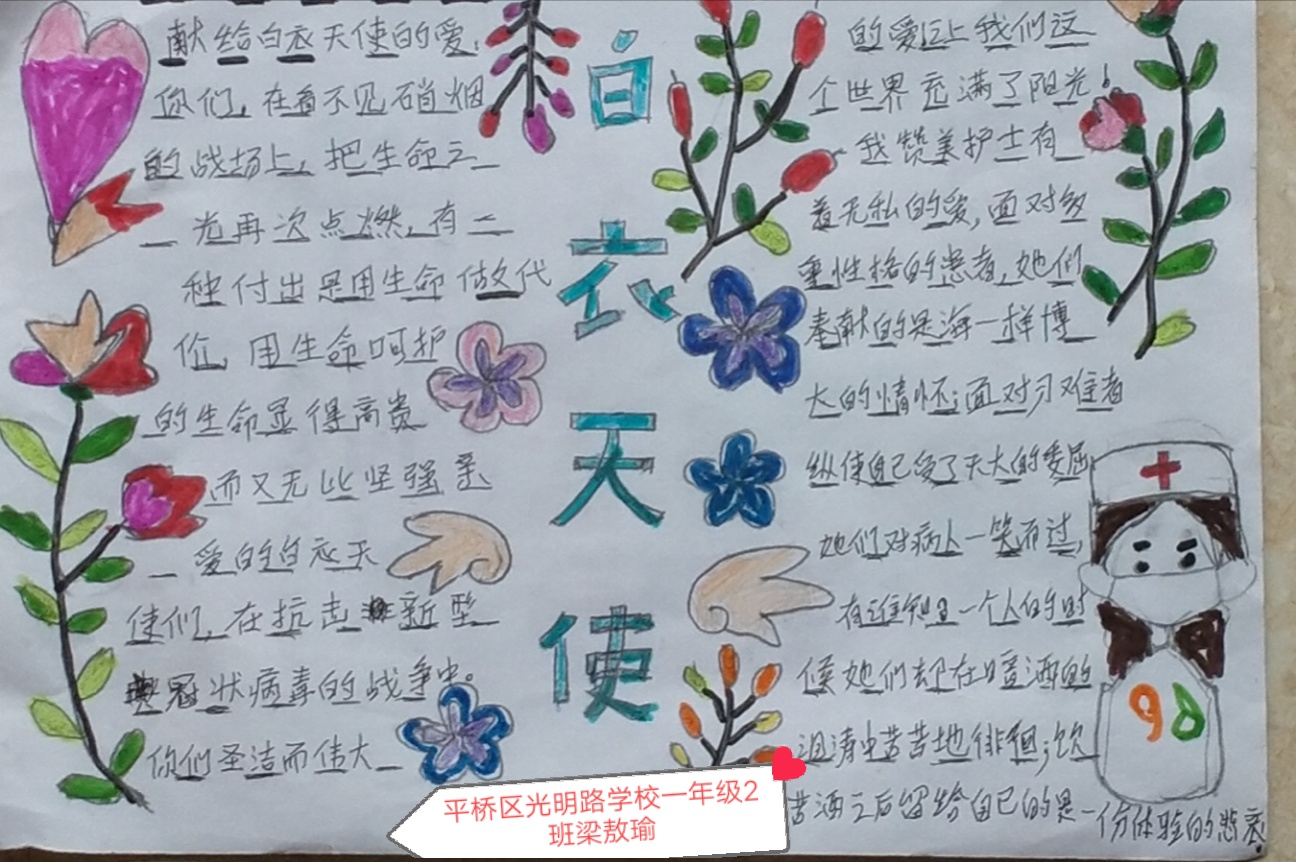 白衣天使
献给白衣天使的爱:
你们,在看不见硝烟
的战场上,把生命之
光再次点燃,有一
种付出是用生命做代
价,用生命呵护
的生命显得高贵
而又无比坚强亲
爱的白衣天
使们,在抗击新型
冠状病毒的战争中。
你们圣洁而伟大
的爱让我们这
个世界充满了阳光!
我赞美护士有
着无私的爱,面对多
重性格的患者,她们
奉献的是海一样博
大的情怀;面对刁难者
纵使自己受了天大的委屈
她们对病人一笑而过,
有谁知一个人的时
候她们却在喧洒的
泪清中苦苦地徘徊;饮
苦洒之后留给自己的是一份体验的悲哀
平桥区光明路学校一年级2
班梁敖瑜